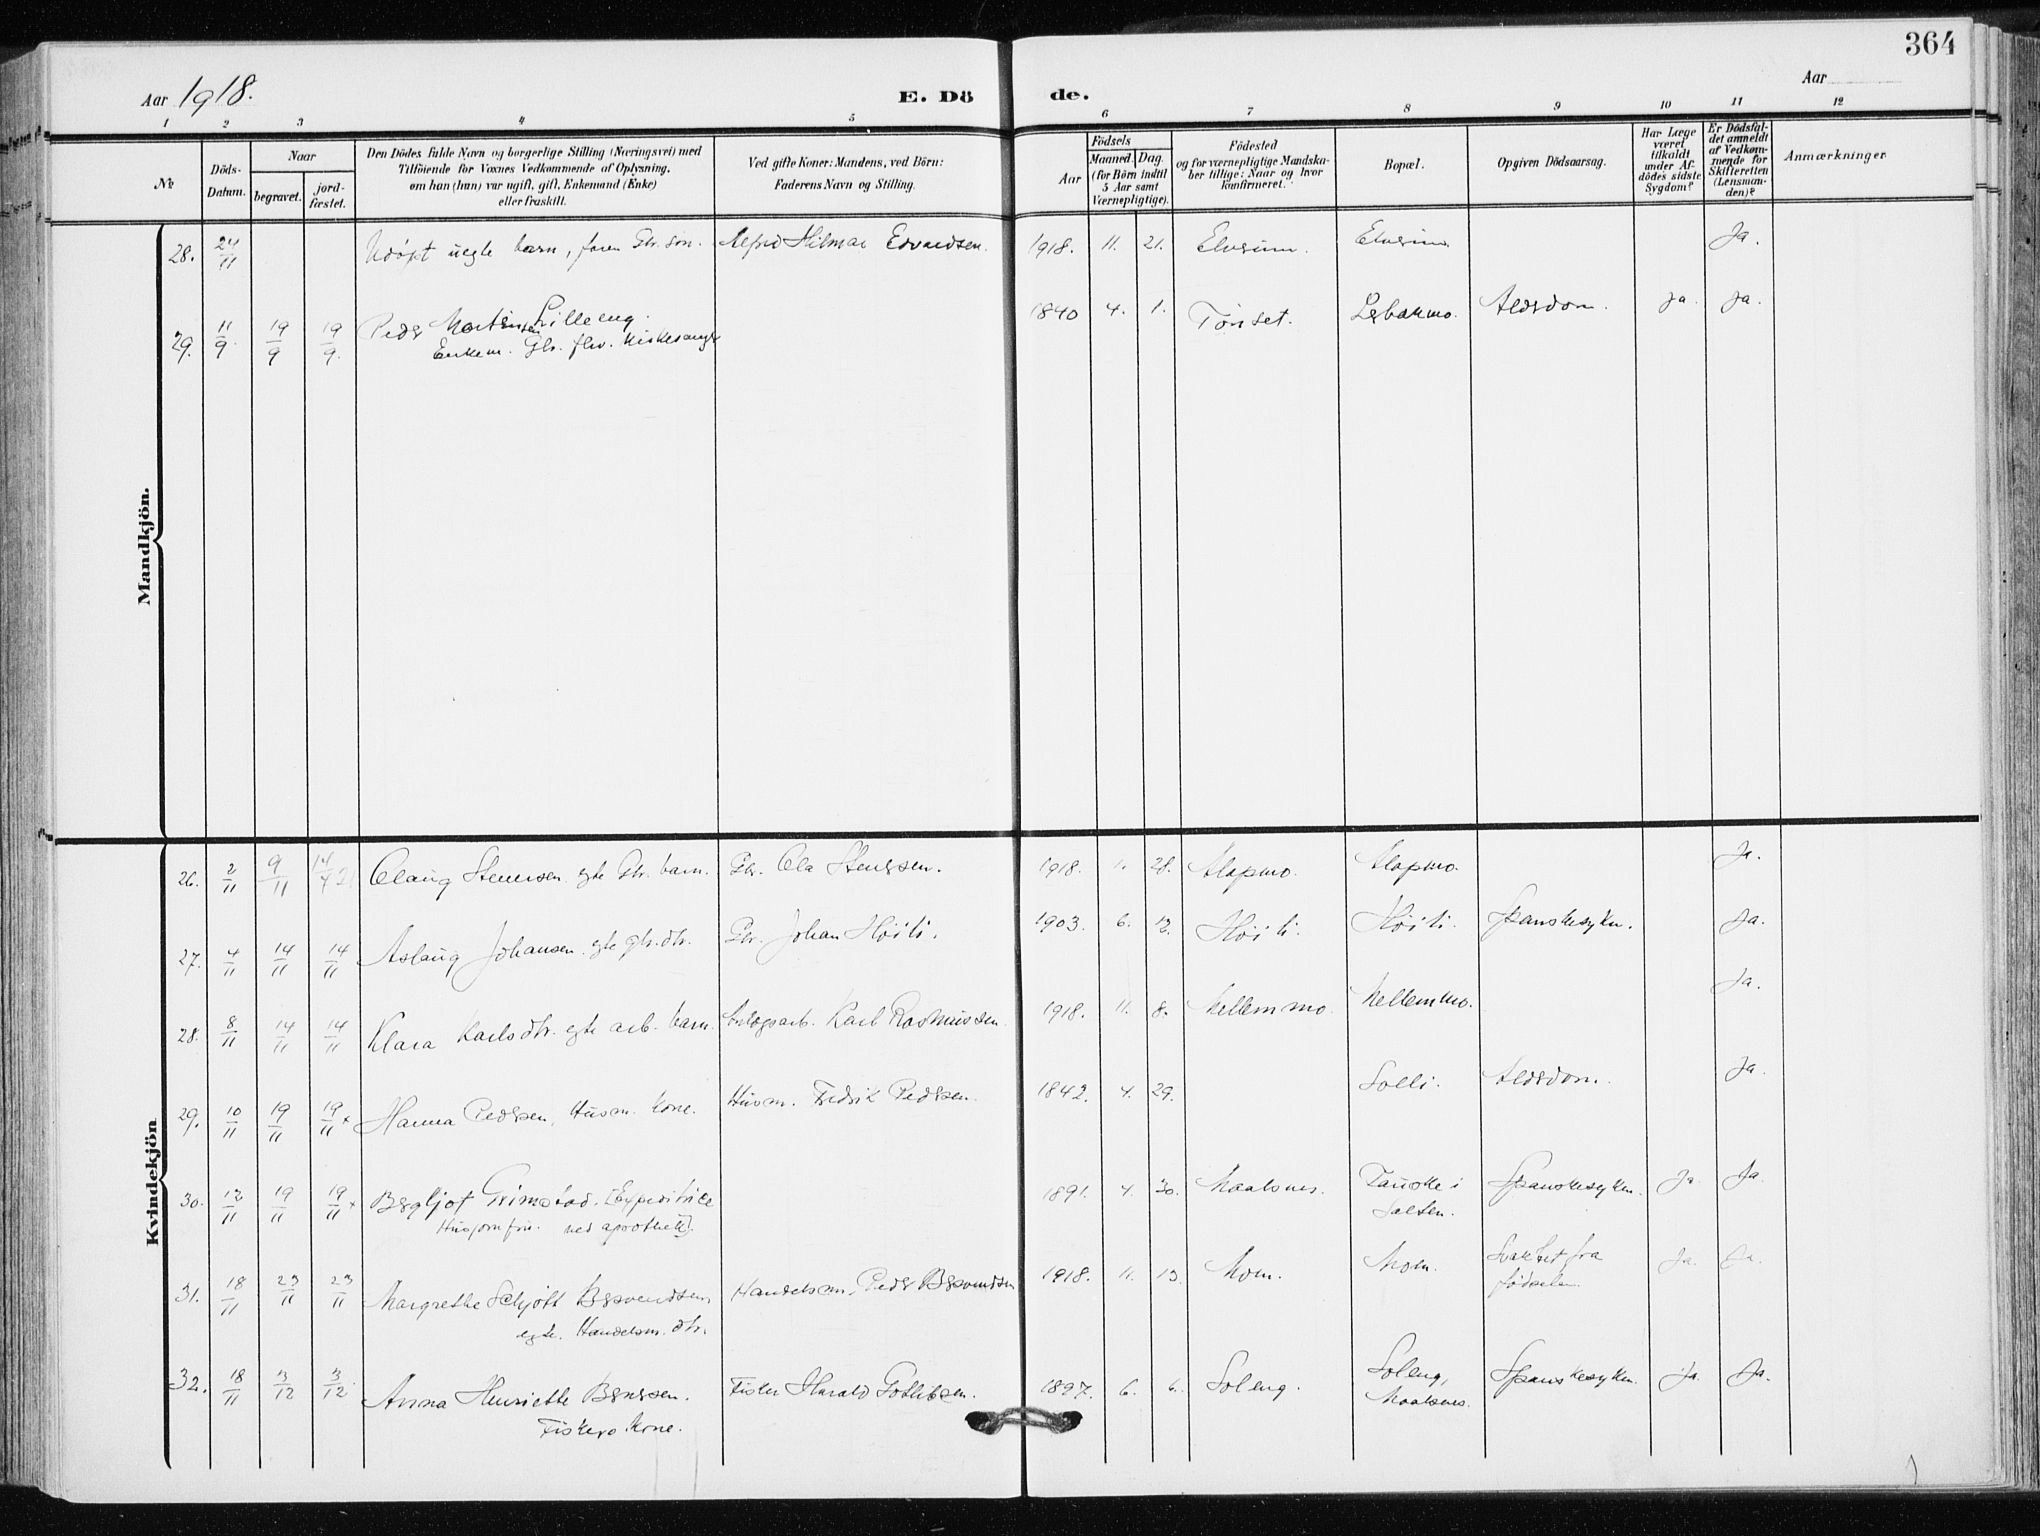 364
Aar 1918. E. Dö de. Aar
1 2 3 4 5 6 7 8 9 10 11 12
№
Döds-
Datum.
Naar
begravet.
jord-
fæstet.
Den Dödes fulde Navn og borgerlige Stilling (Næringsvei) med
Tilföiende for Voxnes Vedkommende af Oplysning,
om han (hun) var ugift, gift, Enkemand (Enke)
eller fraskilt.
Ved gifte Koner: Mandens, ved Börn:
Faderens Navn og Stilling.
Födsels
Aar
Maaned. Dag.
(for Börn indtil
5 Aar samt
Værnepligtige).
Födested
og for værnepligtige Mandska-
ber tillige: Naar og hvor
konfirmeret.
Bopæl.
Opgiven Dödsaarsag.
Har Læge
været
tilkaldt
under Af-
dödes sidste
Sygdom?
Er Dödsfal-
det anmeldt
af Vedkom-
mende for
Skifteretten
(Lensman-
den)?
Anmærkninger
Mandkjön.
28. 24/11 Udöpt uegte barn, faren Gbr. sön. Alfred Hilmar Edvardsen. 1918. 11. 21. Elverum. Elverum Ja.
29. 11/9 19/9 19/9. Peder Mortensen Lilleeng. 1840 4. 1. Tönset. Alderdom. ja. ja.
Enkem. Gbr. fhv. kirkesanger
Kvindekjön
26. 2/11 9/11 14/4 21 Olaug Stenersen. egte Gbr. barn. Gbr. Ola Stenersen. 1918. 1. 28. Alapmo. Alapmo. Ja.
27. 4/11 14/11 14/11 Aslaug Johansen. egte gbr. dtr. Gbr. Johan Höili. 1903. 6. Höili. Höili. Spanskesyken. Ja.
28. 8/11 14/11 14/11 Klara Karlsdtr. egte arb. barn. Karl Rasmussen 1918. 11. 8. Mellemmo. Mellemmo. Ja.
29. 10/11 19/11 19/11 x Hanna Pedersen, Husm. kone. Husm. Fredrik Pedersen. 1842. 4. 29. Solli. Alderdom. Ja.
30. 12/11 19/11 19/11 x Bergljot Grimstad. [Expeditrice 1891. 4. 30. Maalsnes. Fauske i Spanskesyken. Ja. Ja.
Husjomfru. ved apothek]. Salten.
31. 18/11 23/11 23/11 Margrethe Schjött Berentsen, Handelsm. Peder Berentsen 1918. 11. 13. Moen. Moen. Svakhet fra Ja. Ja.
egte. Handelsm. dtr. födselen
32. 18/11 3/12 3/12. Anna Henriette Berntsen. Fisker Harald Gotlibsen. 1897. 6. 6. Soleng. Soleng, Spanskesyken. Ja. Ja.
Fiskers kone. Maalsnes.